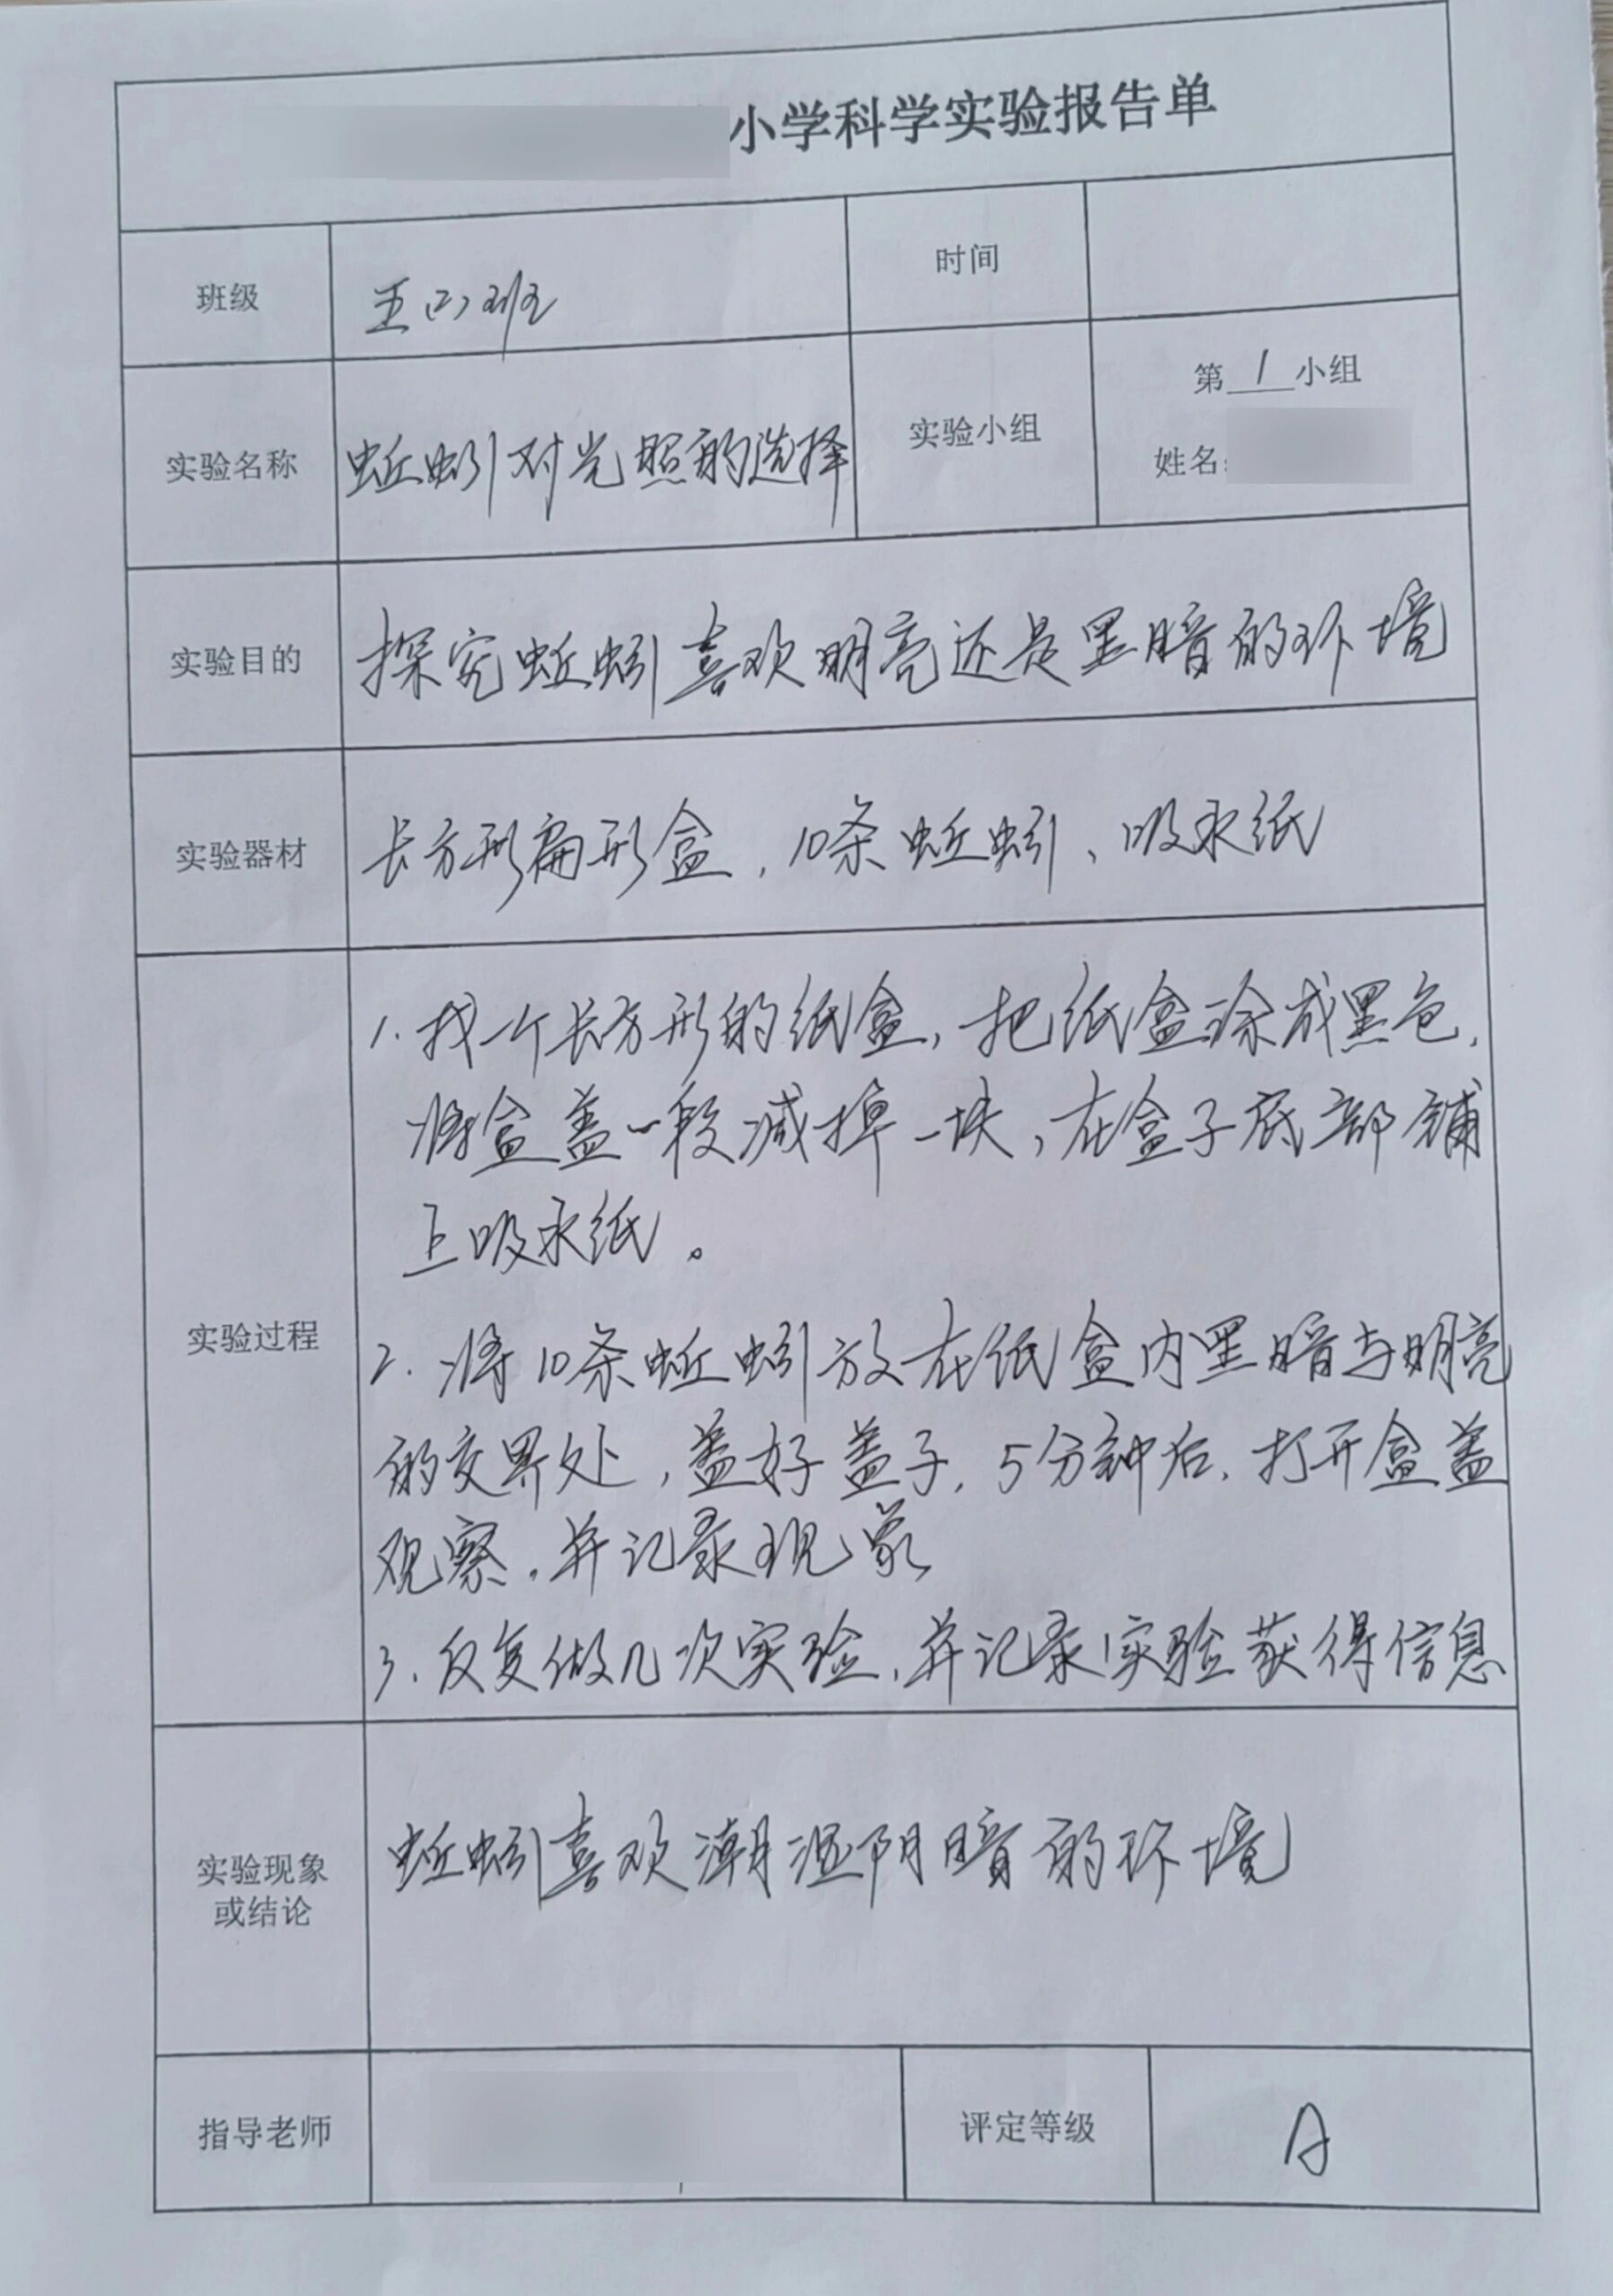 小学科学实验报告单
班级 五(2)班 时间
实验名称 蚯蚓对光照的选择 实验小组 第1小组
姓名:
实验目的 探究蚯蚓喜欢明亮还是黑暗的环境
实验器材 长方形扁形盒,10条蚯蚓、吸水纸
实验过程
1.找一个长方形的纸盒,把纸盒涂成黑色,
将盒盖一段减掉一块,在盒子底部铺
上吸水纸。
2.将10条蚯蚓放在纸盒内黑暗与明亮
的交界处,盖好盖子,5分钟后,打开盒盖
观察,并记录现象
3.反复做几次实验,并记录实验获得信息
实验现象
或结论
蚯蚓喜欢潮湿阴暗的环境
指导老师 评定等级 A